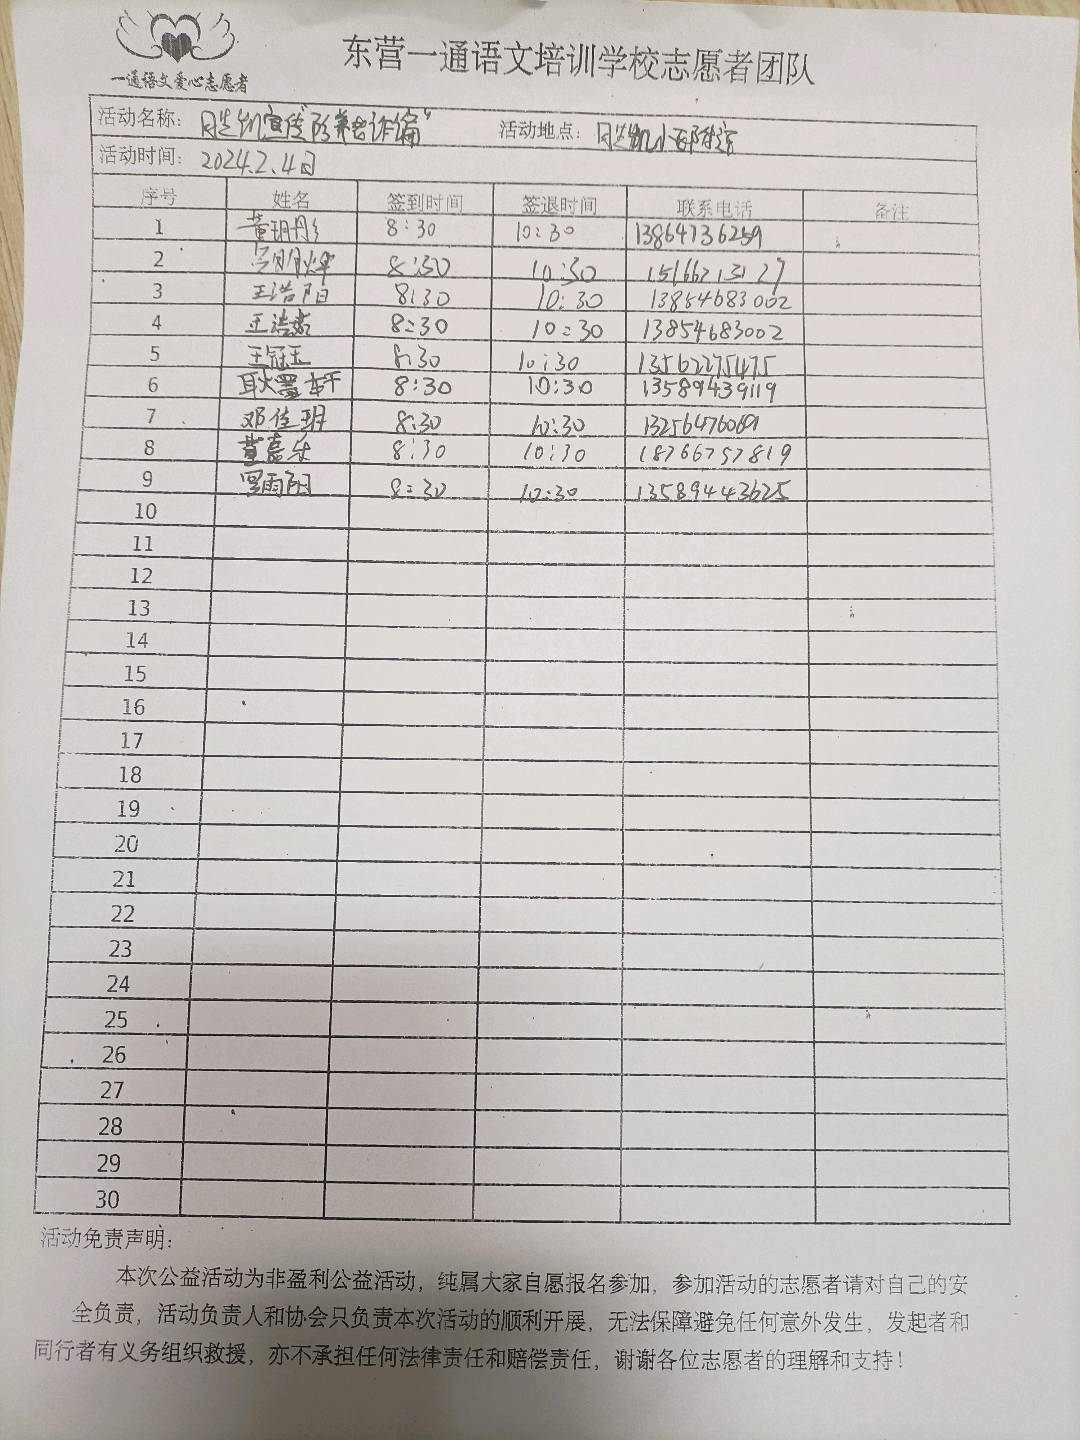 一通语文爱心志愿者
东营一通语文培训学校志愿者团队
活动名称： 宣传"防养老诈骗" 活动地点：
活动时间： 2024.2.4日
序号 姓名 签到时间 签退时间 联系电话 备注
1 董玥彤 8:30 10:30 13864736259
2 8:30 10:30 15166213127
3 王浩阳 8:30 10:30 13854683002
4 王浩嘉 8:30 10:30 13854683002
5 王冠玉 8:30 10:30 13562275475
6 耿墨轩 8:30 10:30 13589439119
7 邓佳玥 8:30 10:30
8 董嘉乐 8:30 10:30 18766757819
9 雨阳 8:30 10:30 13589443625
10
11
12
13
14
15
16
17
18
19
20
21
22
23
24
25
26
27
28
29
30
活动免责声明：
本次公益活动为非盈利公益活动，纯属大家自愿报名参加，参加活动的志愿者请对自己的安
全负责，活动负责人和协会只负责本次活动的顺利开展，无法保障避免任何意外发生，发起者和
同行者有义务组织救援，亦不承担任何法律责任和赔偿责任，谢谢各位志愿者的理解和支持！